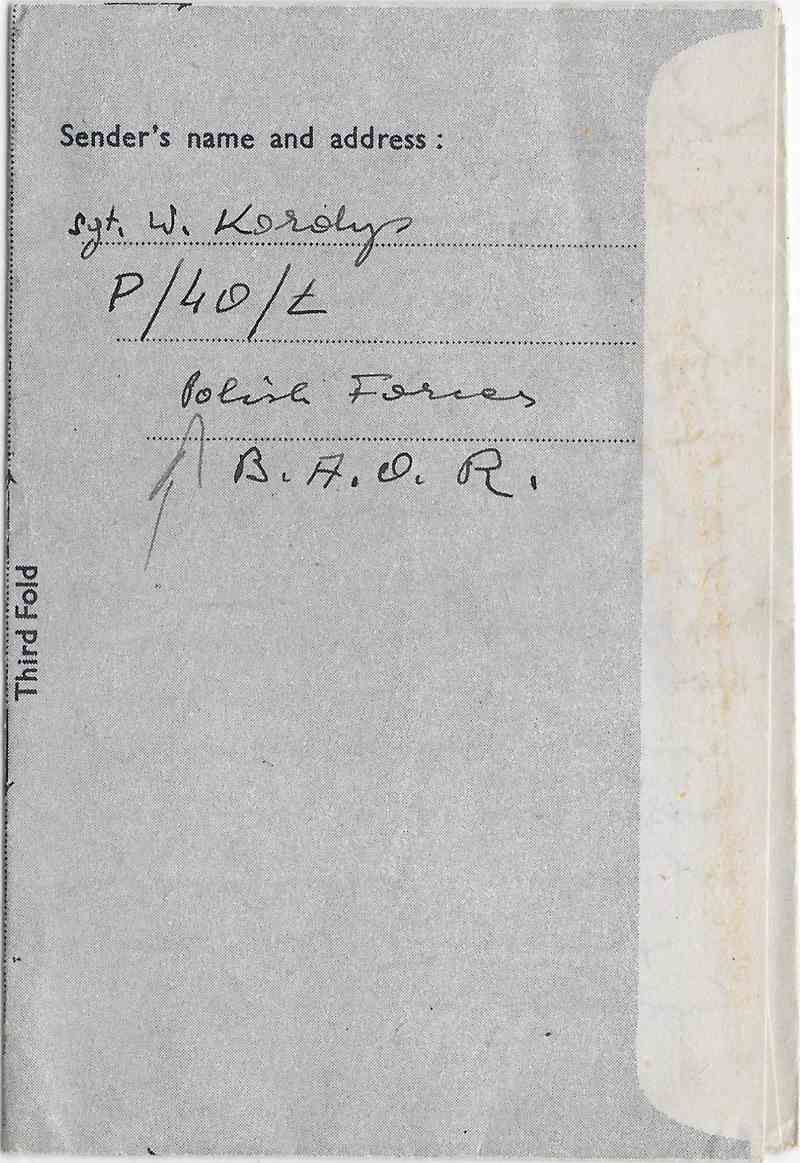 Sender's name and address :
sgt. W. Kordys
P/40/Ł
Polish Forces
B. A. O. R.
Third Fold